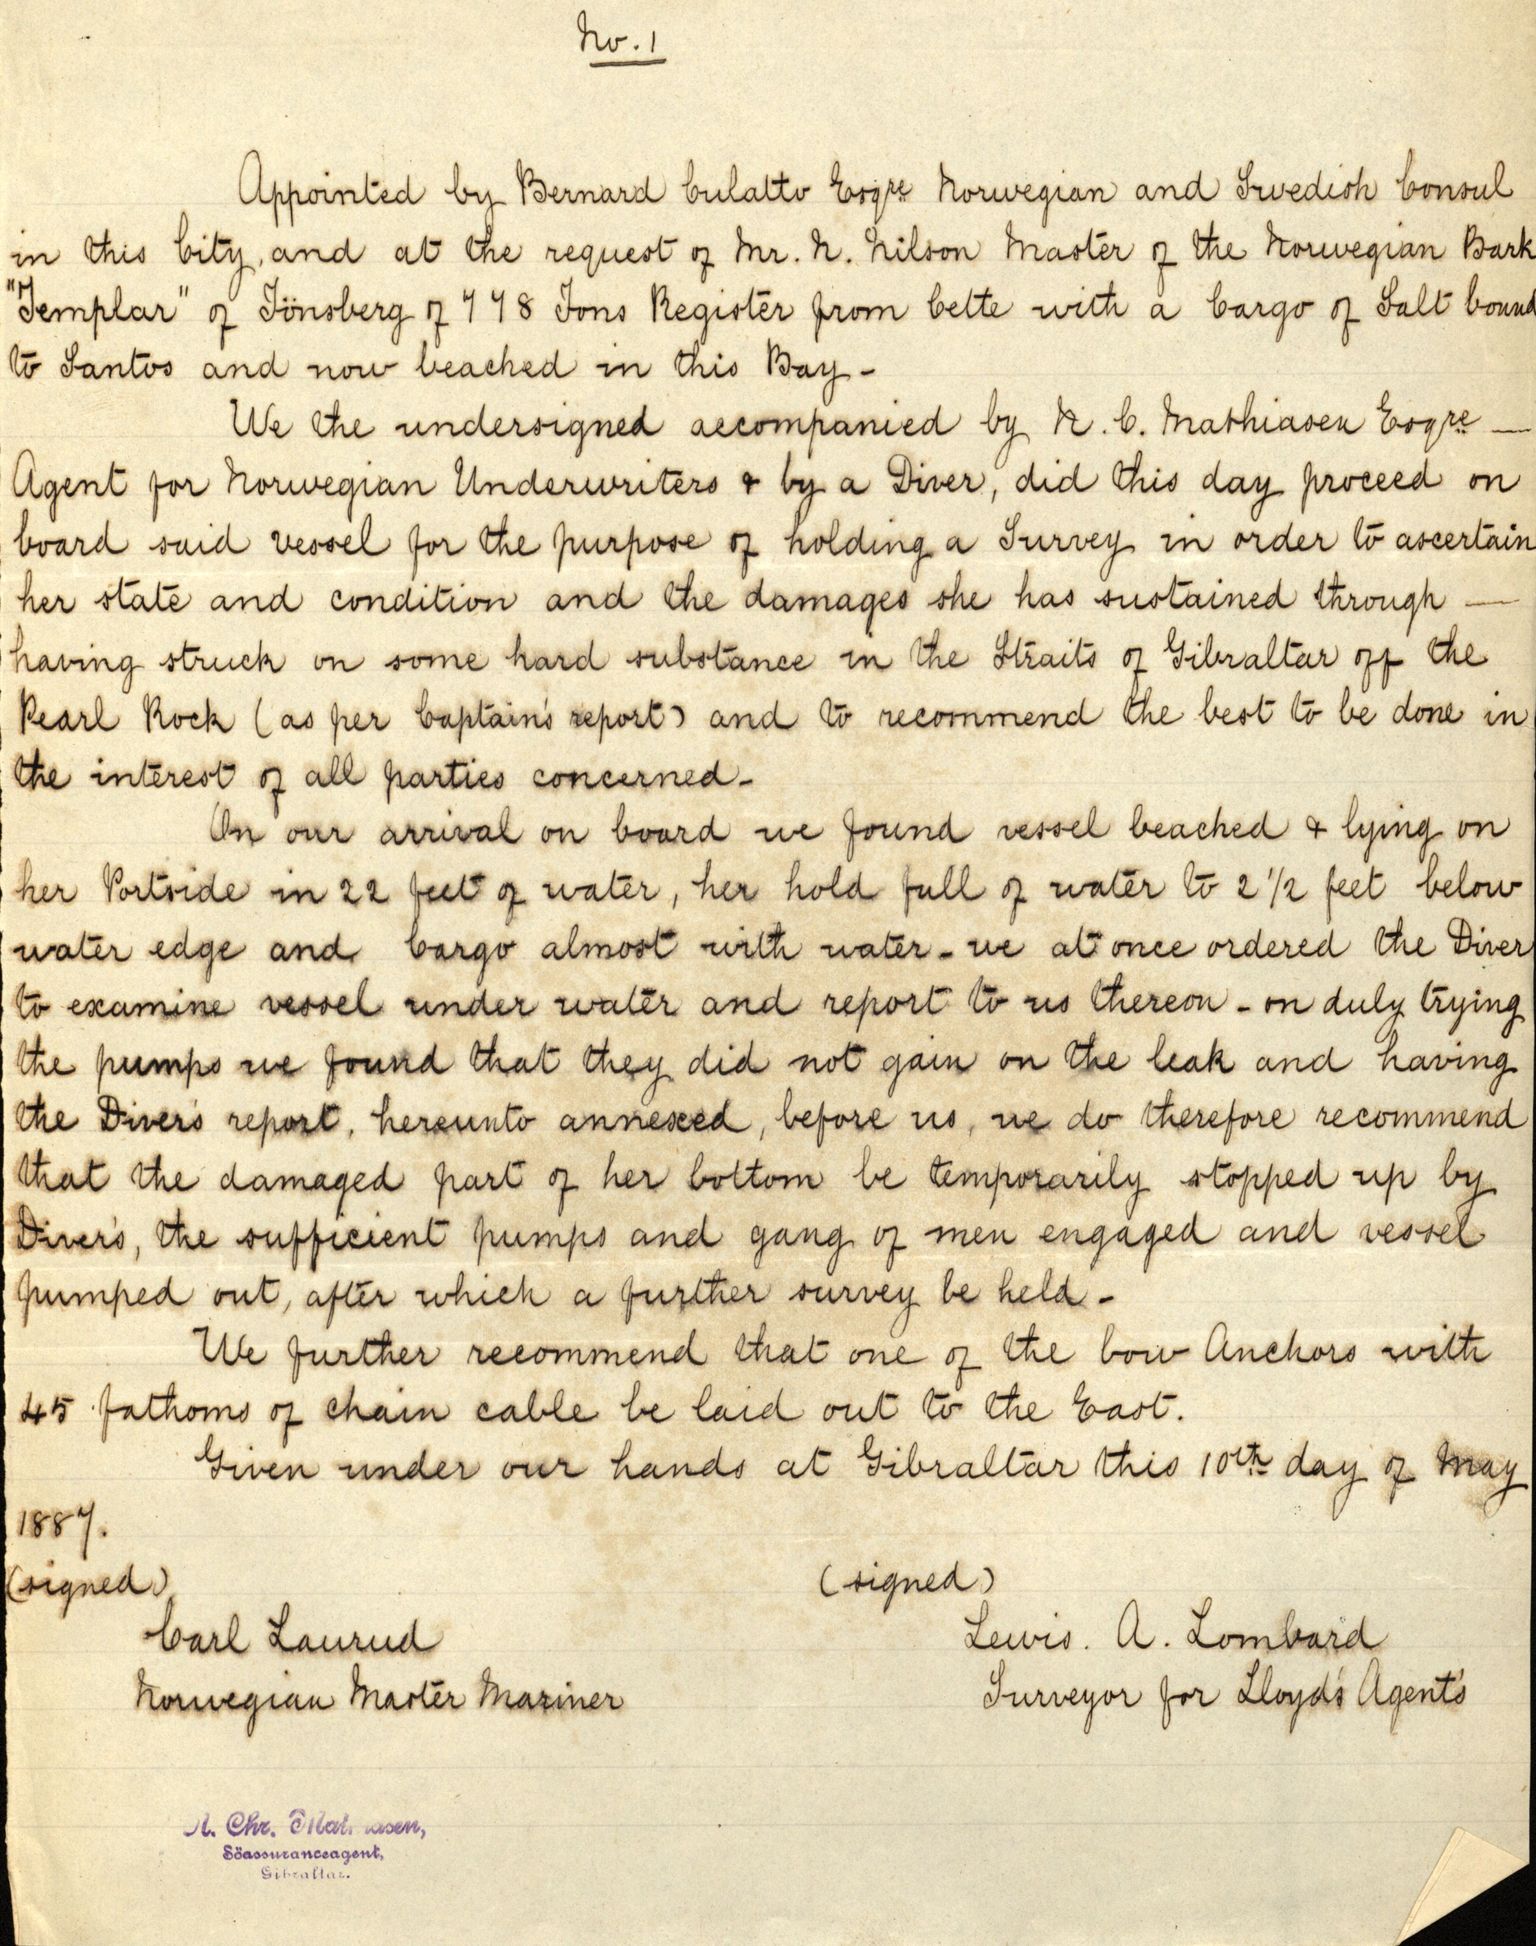 No. 1
Appointed by Bernard Culatto Esqre Norwegian and Swedish Consul
in this City, and at the request of Mr. N. Nilson Master of the Norwegian Bark
"Templar" of Tönsberg of 778 Tons Register from Cette with a Cargo of Salt bound
to Santos and now beached in this Bay -
We the undersigned accompanied by N. C. Mathiasen Esqre —
Agent for Norwegian Underwriters & by a Diver, did this day proceed on
board said vessel for the purpose of holding a Survey in order to ascertain
her state and condition and the damages she has sustained through —
having struck on some hard substance in the Straits of Gibraltar off the
Pearl Rock (as per Captain's report) and to recommend the best to be done in
the interest of all parties concerned -
On our arrival on board we found vessel beached & lying on
her Portside in 22 feet of water, her hold full of water to 2 1/2 feet below
water edge and Cargo almost with water - we at once ordered the Diver
to examine vessel under water and report to us thereon - on duly trying
the pumps we found that they did not gain on the leak and having
the Diver's report, hereunto annexed, before us, we do therefore recommend
that the damaged part of her bottom be temporarily stopped up by
Diver's, the sufficient pumps and gang of men engaged and vessel
pumped out, after which a further survey be held -
We further recommend that one of the bow Anchors with
45 fathoms of chain cable be laid out to the East.
Given under our hands at Gibraltar this 10th day of May
1887.
(signed) (signed)
Carl Laurud Lewis. A. Lombard
Norwegian Master Mariner Surveyor for Lloyd's Agent's
Chr.
Söassuranceagent,
Gibraltar.